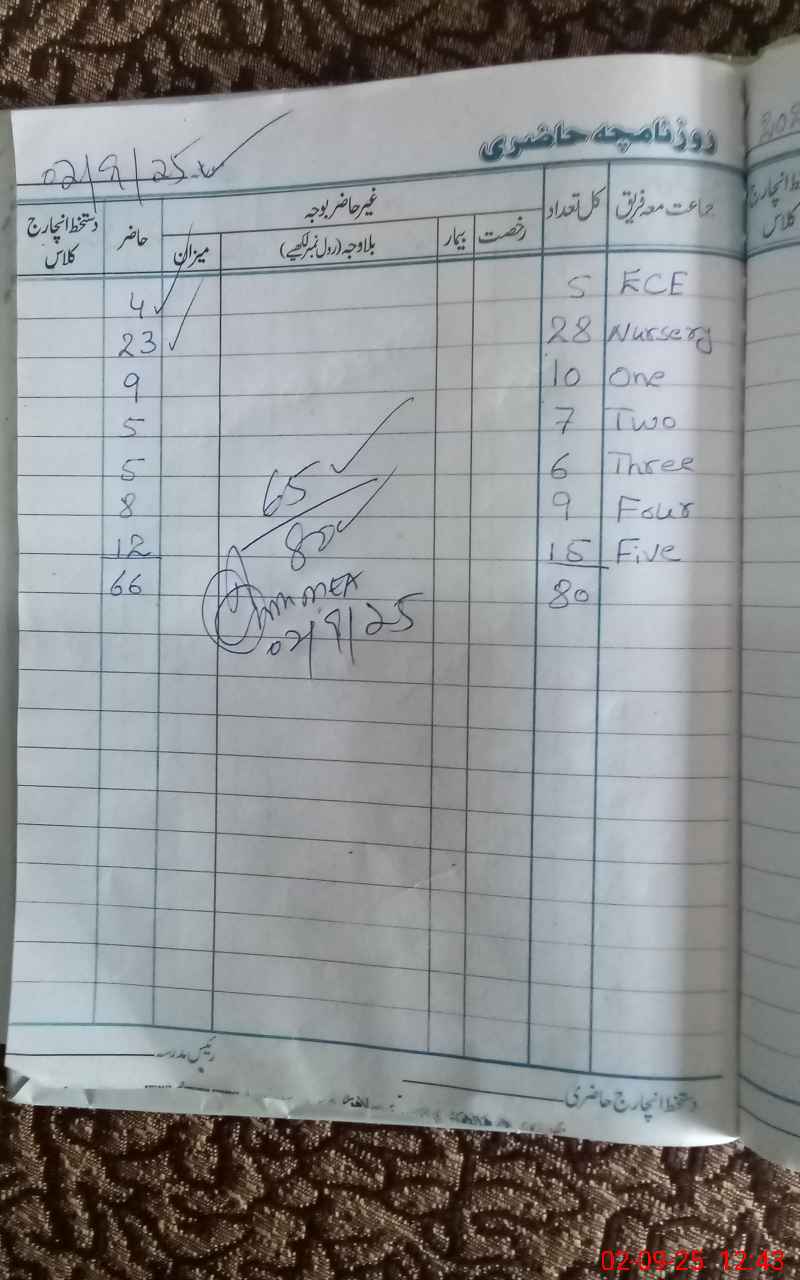 روزنامچہ حاضری
02/9/25
جماعت معہ فریق کل تعداد غیر حاضر بوجہ حاضر دستخط انچارج کلاس
رخصت بیمار بلاوجہ (رول نمبر لکھیے) میزان
ECE 5 4
Nursery 28 23
One 10 9
Two 7 5
Three 6 5
Four 9 8
Five 15 12
80 66
65
80
MEA
02/9/25
رئیس مدرسہ
دستخط انچارج حاضری
02-09-25 12:43